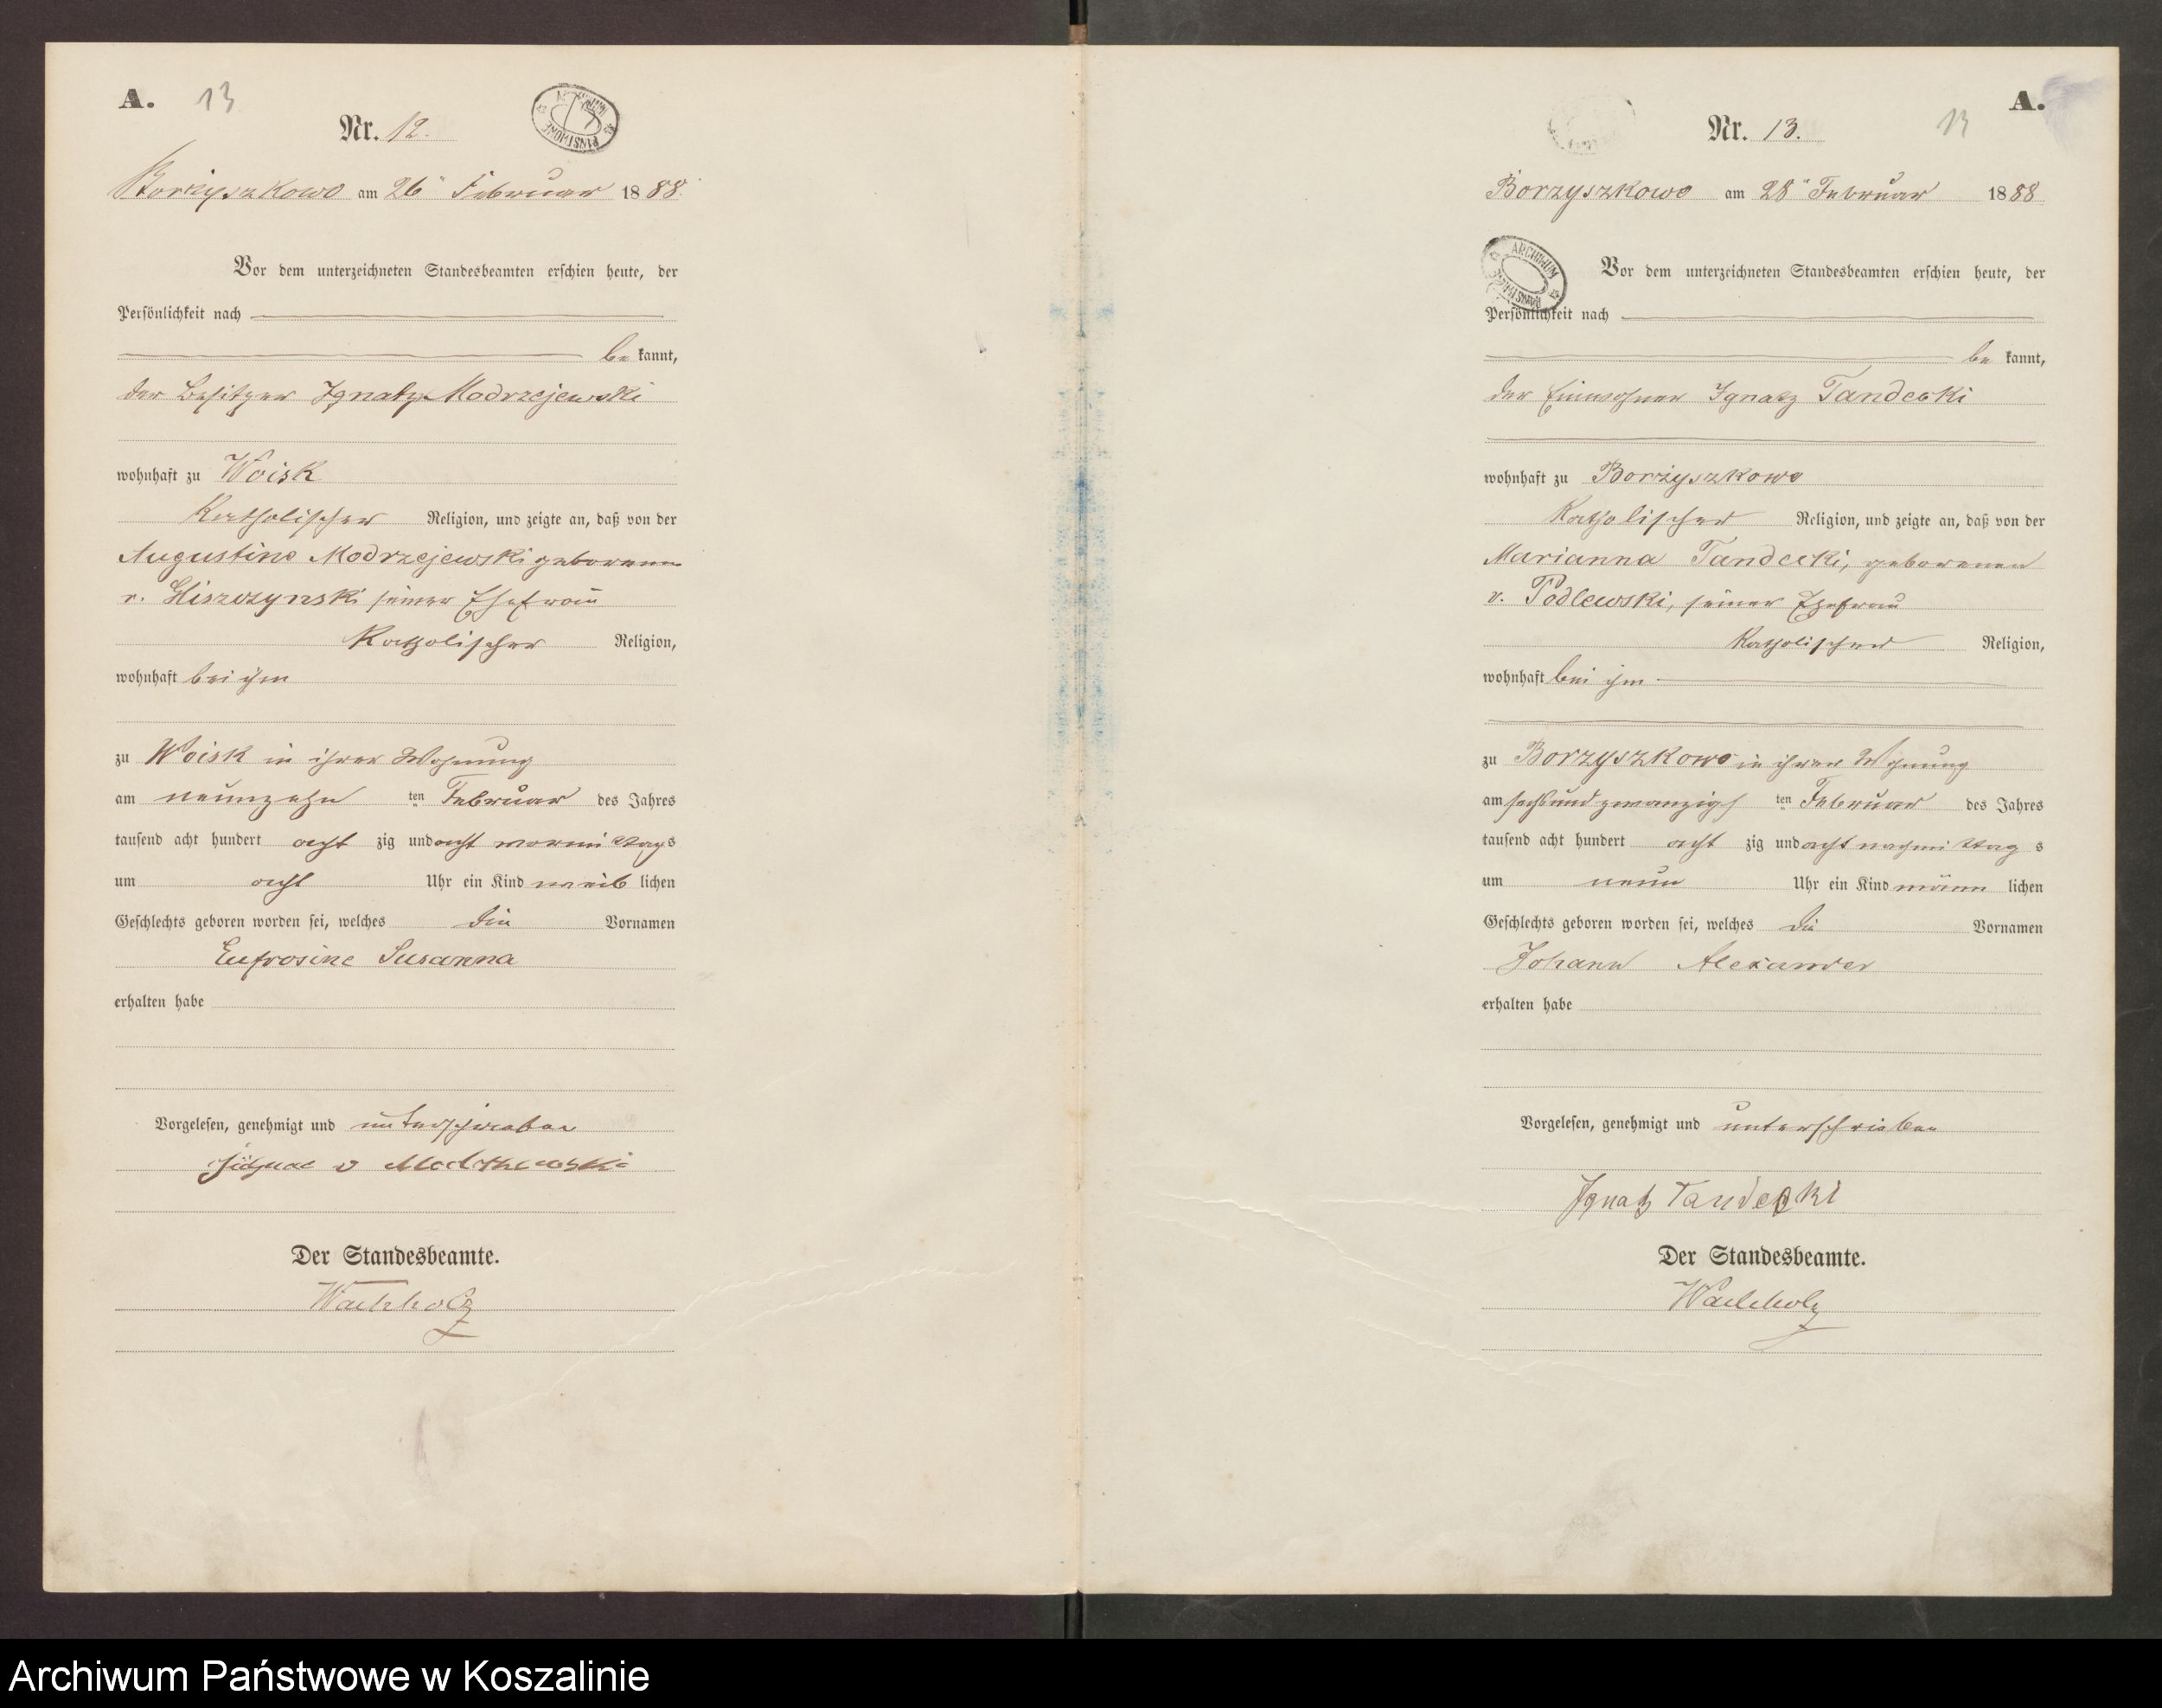 A. 13
Nr. 12.
Borzyszkowo am 26ⁿ Februar 1888.
Vor dem unterzeichneten Standesbeamten erschien heute, der
Persönlichkeit nach
be kannt,
der Besitzer Ignatz Modrzejewski
wohnhaft zu Woisk
Katholischer Religion, und zeigte an, daß von der
Augustine Modrzejewski geborenen
v. seiner Ehefrau
Katholischer Religion,
wohnhaft bei ihm
zu Woisk in ihrer Wohnung
am neunzehn ten Februar des Jahres
tausend acht hundert acht zig und acht vormittags
um acht Uhr ein Kind weib lichen
Geschlechts geboren worden sei, welches die Vornamen
Eufrosine Susanna
erhalten habe
Vorgelesen, genehmigt und unterschrieben
v
Der Standesbeamte.
Wachholz
A.
13
Nr. 13.
Borzyszkowo am 28ⁿ Februar 1888
ARCHIWUM
Vor dem unterzeichneten Standesbeamten erschien heute, der
Persönlichkeit nach
be kannt,
der Einwohner Ignatz Tandecki
wohnhaft zu Borzyszkowo
Katholischer Religion, und zeigte an, daß von der
Marianna Tandecki, geborenen
v. Podlewski, seiner Ehefrau
Katholischer Religion,
wohnhaft bei ihm
zu Borzyszkowo in ihrer Wohnung
am sechsundzwanzigs ten Februar des Jahres
tausend acht hundert acht zig und acht nachmittag s
um neun Uhr ein Kind männ lichen
Geschlechts geboren worden sei, welches die Vornamen
Johann Alexander
erhalten habe
Vorgelesen, genehmigt und unterschrieben
Ignatz Tandecki
Der Standesbeamte.
Wachholz
Archiwum Państwowe w Koszalinie